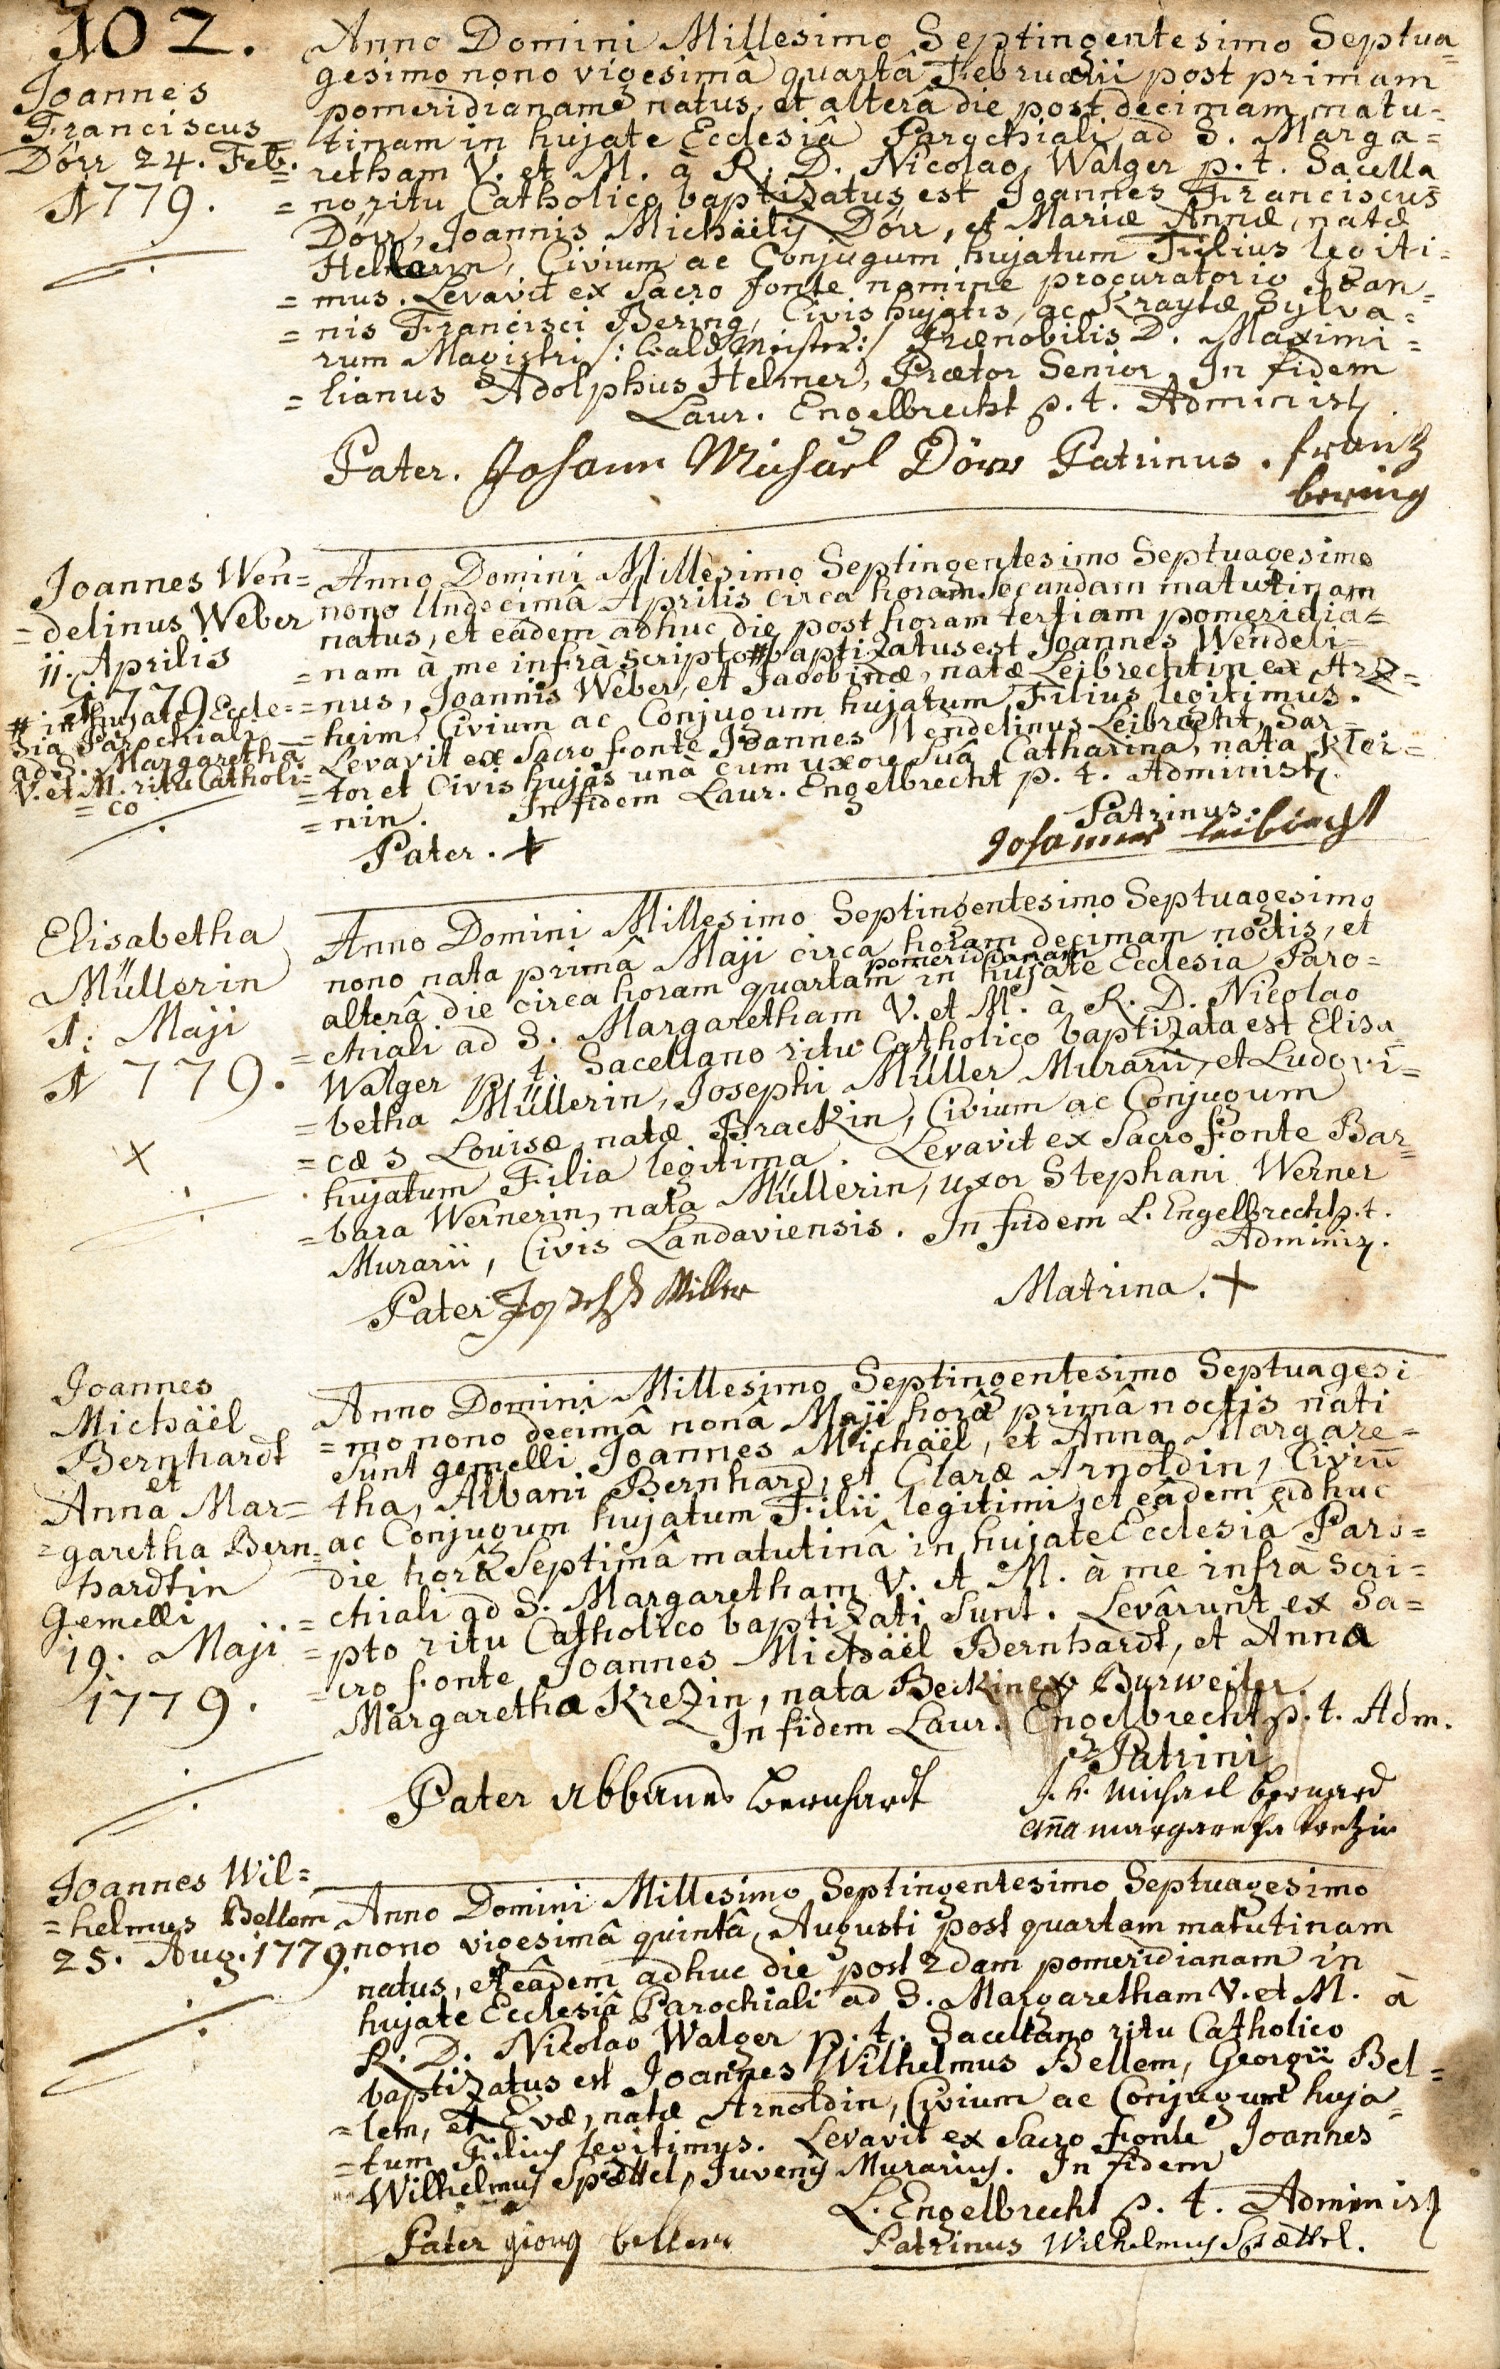 102.
Joannes
Franciscus
Dörr 24. Feb.
1779.
Anno Domini Millesimo Septingentesimo Septua=
gesimo nono vigesimâ quartâ Februarii post primam
pomeridianam natus, et alterâ die post decimam matu=
=tinam in hujate Ecclesiâ Parochiali ad S. Marga=
=retham V. et M. à R. D. Nicolao Walger p. t. Sacella
=no ritu Catholico baptizatus est Joannes Franciscus
Dörr, Joannis Michäelis Dörr, et Mariæ Annæ, natæ
Civium ac Conjugum hujatum Filius legiti=
=mus. Levavit ex Sacro fonte nomine procuratorio Joan=
=nis Francisci Bering, Civis hujatis, ac Kraytæ Sylva=
rum Magistri /: Wald Meister :/ Prænobilis D. Maximi=
=lianus Adolphus Helmer, Prætor Senior. In fidem
Laur. Engelbrecht p. t. Administ.
Pater. Johann Michael Dörr Patrinus. frantz
bering
Joannes Wen=
=delinus Weber
11. Aprilis
1779
# in hujate Eccle=
sia Parochiali
ad S. Margaretha
V. et M. ritu Catholi=
=co
Anno Domini Millesimo Septingentesimo Septuagesimo
nono Undecimâ Aprilis circa horam secundam matutinam
natus, et eâdem adhuc die post horam tertiam pomeridia=
=nam à me infrà scripto # baptizatus est Joannes Wendeli=
=nus, Joannis Weber, et Jacobinæ, natæ Leibrechtin ex Arz=
=heim Civium ac Conjugum hujatum Filius legitimus.
Levavit ex Sacro fonte Joannes Wendelinus Leibrecht, Sar=
=tor et Civis hujas unà cum uxore suâ Catharina, nata Klei=
=nin. In fidem Laur. Engelbrecht p. t. Administ.
Pater. + Patrinus.
Johannes leibrecht
Elisabetha
Müllerin
1. Maji
1779.
x
Anno Domini Millesimo Septingentesimo Septuagesimo
nono nata primâ Maji circa horam decimam noctis, et
pomeridianam
alterâ die circa horam quartam in hujate Ecclesia Paro=
=chiali ad S. Margaretham V. et M. à R. D. Nicolao
Walger p. t. Sacellano ritu Catholico baptizata est Elisa
=betha Müllerin, Josephi Müller Murarii, et Ludovi=
=cæ s Louisæ, natæ Brackin, Civium ac Conjugum
hujatum Filia legitima. Levavit ex Sacro fonte Bar=
=bara Wernerin, nata Müllerin, uxor Stephani Werner
Murarii, Civis Landaviensis. In fidem L. Engelbrecht p. t.
Administ.
Pater Joseph Miller Matrina. +
Joannes
Michäel
Bernhardt
et
Anna Mar=
=garetha Bern=
hardtin
Gemelli
19. Maji
1779.
Anno Domini Millesimo Septingentesimo Septuagesi
=mo nono decimâ nonâ Maji horâ primâ noctis nati
sunt gemelli Joannes Michäel, et Anna Margare=
tha, Albani Bernhard, et Claræ Arnoldin, Civiū
ac Conjugum hujatum Filii legitimi, et eâdem adhuc
die horâ Septimâ matutinâ in hujate Ecclesiâ Paro=
=chiali ad S. Margaretham V. et M. à me infrà scri=
=pto ritu Catholico baptizati sunt. Levârunt ex Sa=
=cro fonte Joannes Michäel Bernhardt, et Anna
Margaretha Krezin, nata Beckin ex Burweiler.
In fidem Laur. Engelbrecht p. t. Adm.
Patrini
Pater Abbanus bernhardt
Michael bernard
aña margaretha kretzin
Joannes Wil=
=helmus Bellem
25. Aug. 1779.
Anno Domini Millesimo Septingentesimo Septuagesimo
nono vigesimâ quintâ Augusti post quartam matutinam
natus, et eâdem adhuc die post 2dam pomeridianam in
hujate Ecclesiâ Parochiali ad S. Margaretham V. et M. à
R. D. Nicolao Walger p. t. Sacellano ritu Catholico
baptizatus est Joannes Wilhelmus Bellem, Georgii Bel=
=lem, et Evæ, natæ Arnoldin, Civium ac Conjugum huja=
=tum Filius legitimus. Levavit ex Sacro fonte Joannes
Wilhelmus Spættel, Juvenis Murarius. In fidem
L. Engelbrecht p. t. Administ
Pater giorg bellem Patrinus Wilhelmus Spættel.